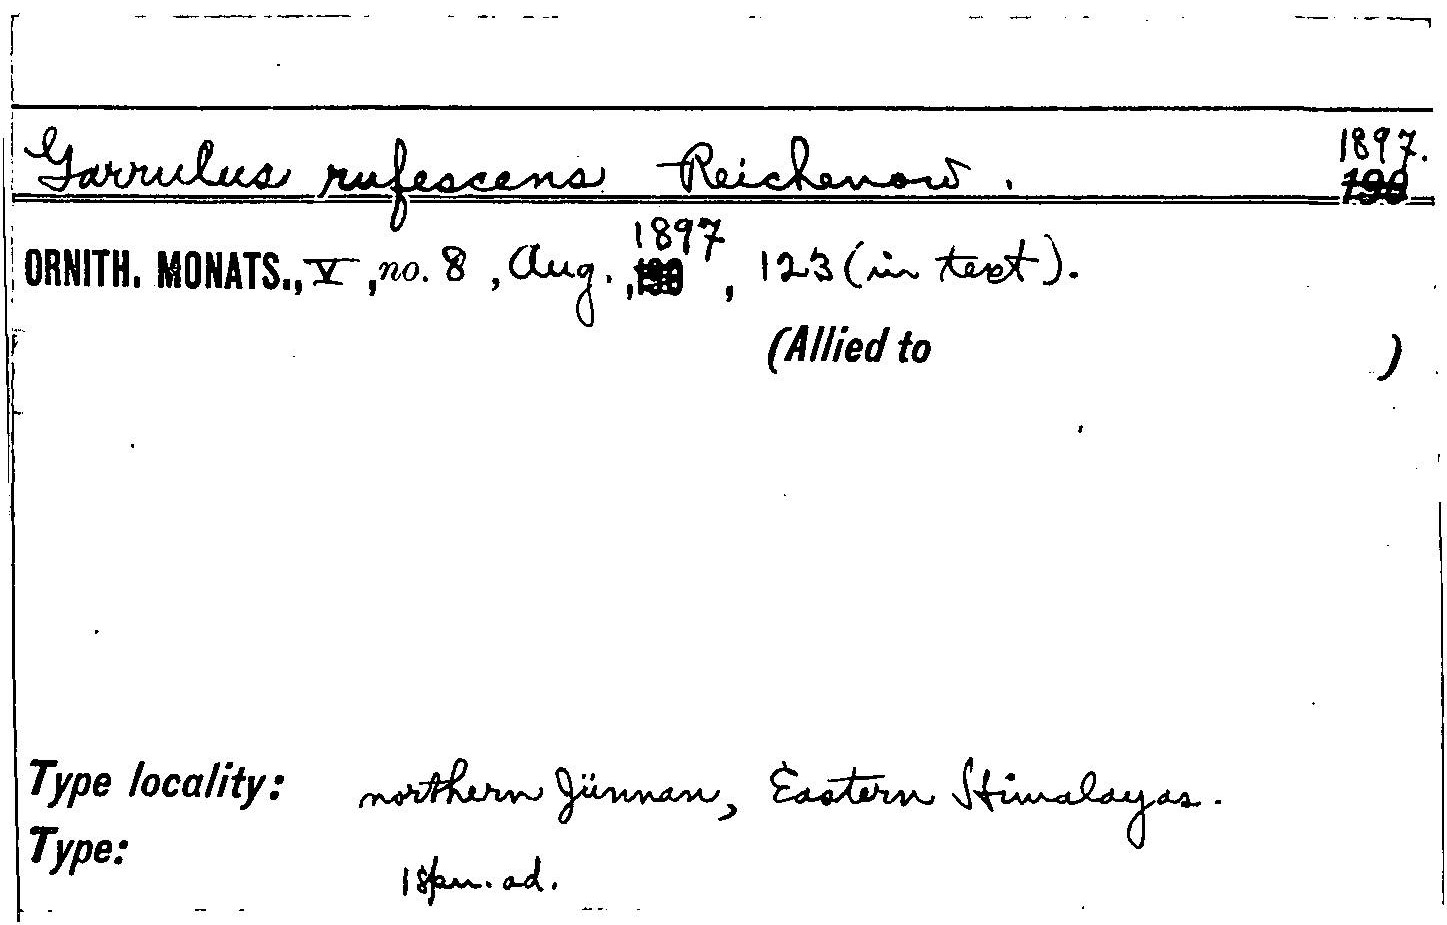 Garrulus rufescens Reichenow. 1897.
190
ORNITH. MONATS., V, no. 8, Aug., 1897, 123 (in text).
190
(Allied to )
Type locality: northern Jünnan, Eastern Himalayas.
Type:
1 spm. ad.